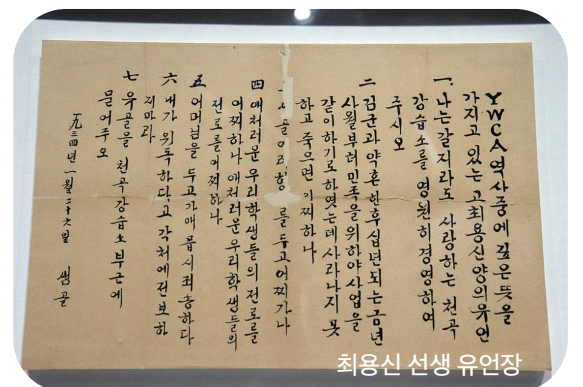 YWCA 역사중에 깊은 뜻을
가지고 있는 고최용신양의유언
一. 나는 갈지라도 사랑하는 천곡
강습소를 영원히 경영하여
주시오
二 김군과 약혼한후 십년되는 금년
사월부터 민족을 위하야 사업을
같이하기로 하였는데 사라나지 못
하고 죽으면 어찌하나
샘골 여러 형 를 두고 어찌 가나
四 애처러운 우리 학생들의 전로를
어찌하나 애처러운 우리 학생들의
전로를 어찌하나
五 어머님을 두고 가매 몹시 죄송하다
六 내가 위독하다고 각처에 전보하
지마라
七 유골을 천곡강습소 부근에
묻어주오
一九三四년 一월 二十六일 샘골
최용신 선생 유언장